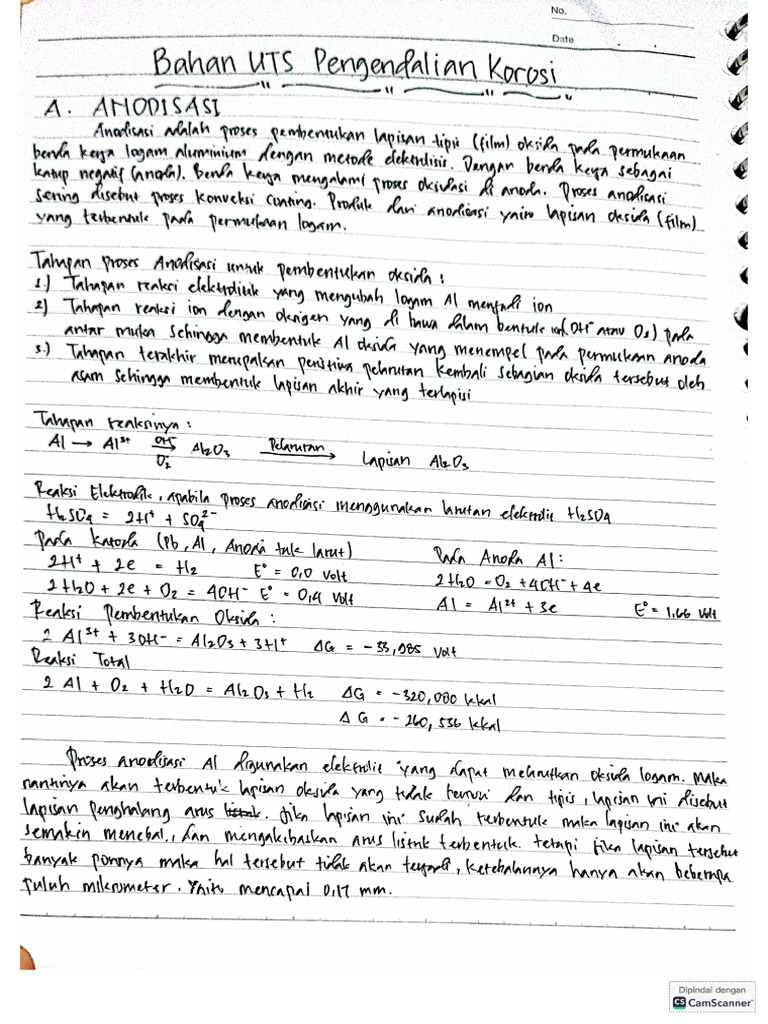 No.
Date
Bahan UTS Pengendalian Korosi
A. ANODISASI
Anodisasi adalah proses pembentukan lapisan tipis (film) oksida pada permukaan
benda kerja logam aluminium dengan metode elektrolisis. Dengan benda kerja sebagai
katup negatif (anoda). Benda kerja mengalami proses oksidasi di anoda. Proses anodisasi
sering disebut proses konveksi coating. Produk dari anodisasi yaitu lapisan oksida (film)
yang terbentuk pada permukaan logam.
Tahapan proses Anodisasi untuk pembentukan oksida :
1.) Tahapan reaksi elektrolitik yang mengubah logam Al menjadi ion
2) Tahapan reaksi ion dengan oksigen yang di bawa dalam bentuk ion (OH⁻ atau O₂) pada
antar muka sehingga membentuk Al oksida yang menempel pada permukaan anoda
3.) Tahapan terakhir merupakan peristiwa pelarutan kembali sebagian oksida tersebut oleh
asam sehingga membentuk lapisan akhir yang terlapisi
Tahapan reaksinya :
Al → Al³⁺ OH⁻ → O₂ Al₂O₃ Pelarutan → Lapisan Al₂O₃
Reaksi Elektrolik, apabila proses anodisasi menggunakan larutan elektrolit H₂SO₄
H₂SO₄ = 2H⁺ + SO₄²⁻
Pada Katoda (Pb, Al, Anoda tak larut) Pada Anoda Al :
2H⁺ + 2e = H₂ E° = 0,0 Volt 2H₂O = O₂ + 4OH⁻ + 4e
2H₂O + 2e + O₂ = 4OH⁻ E° = 0,41 Volt Al = Al³⁺ + 3e E° = 1,66 Volt
Reaksi Pembentukan Oksida :
2 Al³⁺ + 3OH⁻ = Al₂O₃ + 3H⁺ ΔG = -33,085 Volt
Reaksi Total
2 Al + O₂ + H₂O = Al₂O₃ + H₂ ΔG = -320,000 kkal
ΔG = -260,536 kkal
Proses anodisasi Al digunakan elektrolit yang dapat melarutkan oksida logam. Maka
nantinya akan terbentuk lapisan oksida yang tidak berpori dan tipis, lapisan ini disebut
lapisan penghalang arus listrik. Jika lapisan ini sudah terbentuk maka lapisan ini akan
semakin menebal, dan mengakibatkan arus listrik terbentuk. tetapi jika lapisan tersebut
banyak porinya maka hal tersebut tidak akan terjadi, ketebalannya hanya akan beberapa
puluh mikrometer. Yaitu mencapai 0,17 mm.
Dipindai dengan
CS CamScanner